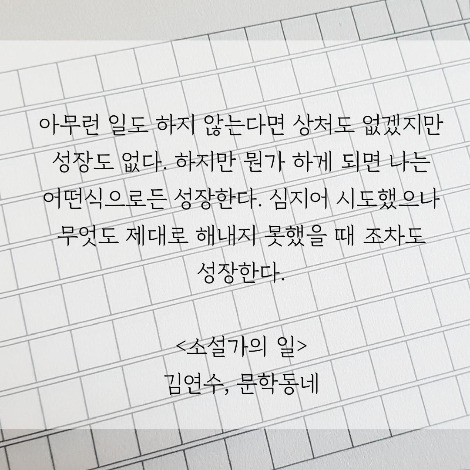 아무런 일도 하지 않는다면 상처도 없겠지만
성장도 없다. 하지만 뭔가 하게 되면 나는
어떤식으로든 성장한다. 심지어 시도했으나
무엇도 제대로 해내지 못했을 때 조차도
성장한다.
<소설가의 일>
김연수, 문학동네